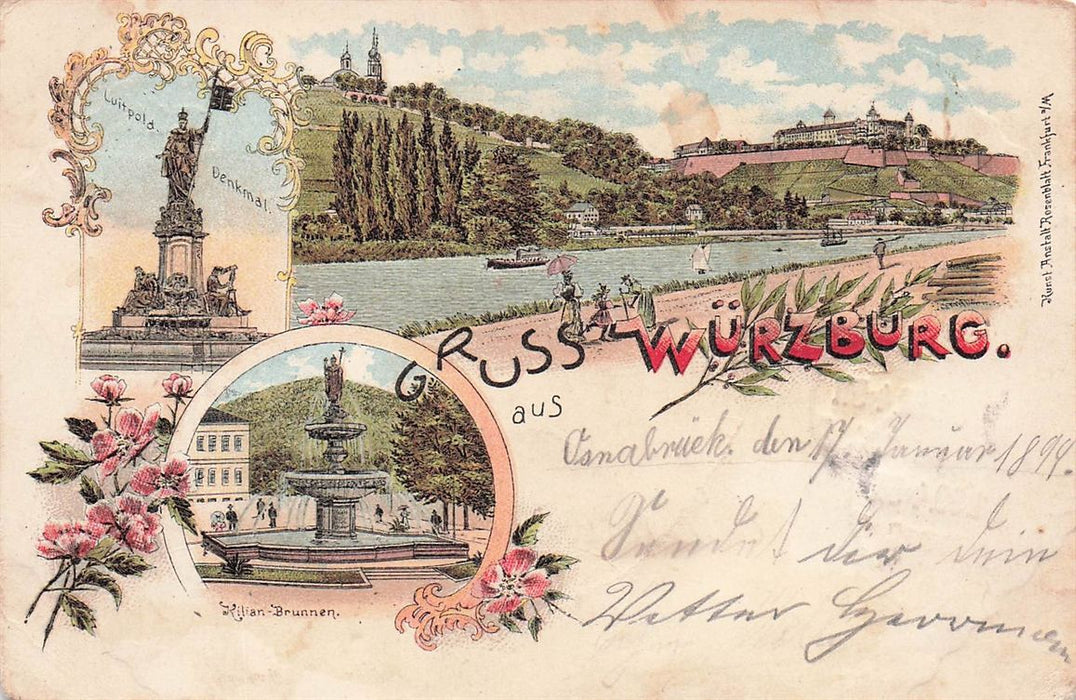 Luitpold.
Denkmal.
GRUSS
aus
WÜRZBURG.
Kilian-Brunnen.
Kunst Anstalt Rosenblatt Frankfurt a/M
Osnabrück. den 17. Januar 1899.
Sendet dir dein
Vetter Herrmann